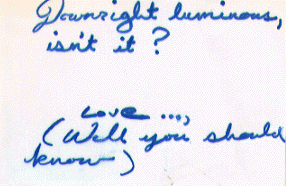 Downright luminous,
isn't it?
Love ...,
(Well you should
know)